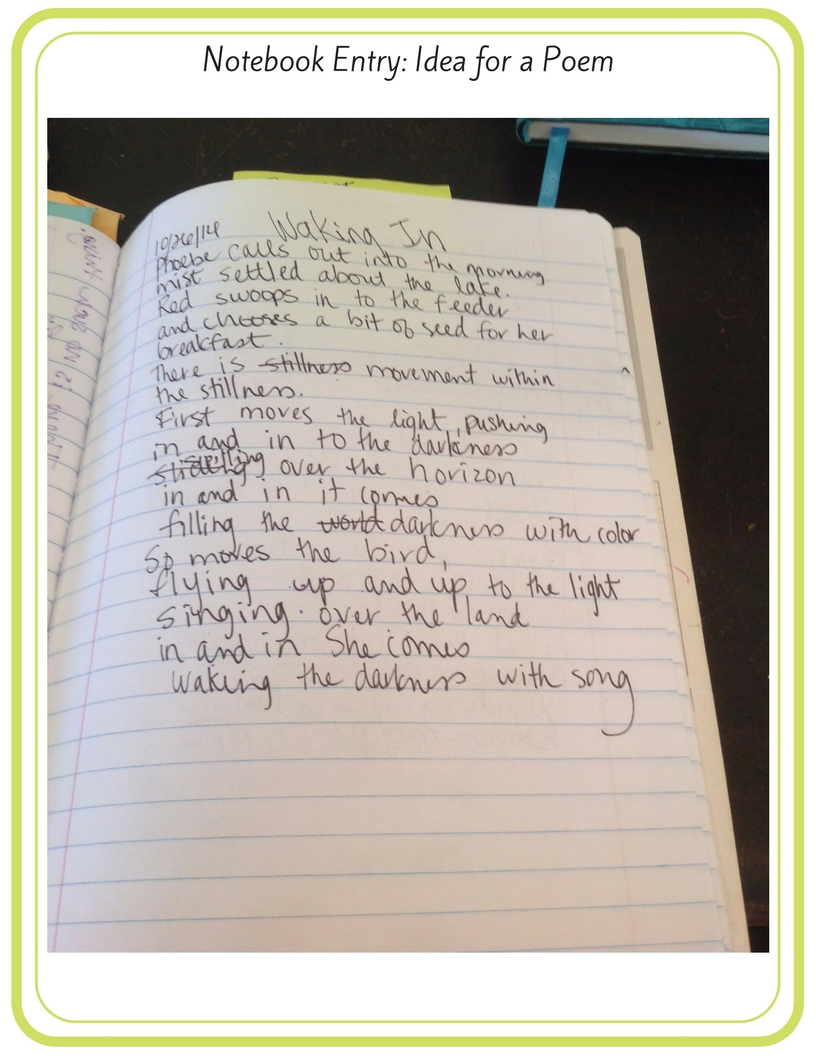 Notebook Entry: Idea for a Poem
10/26/14 Waking In
Phoebe calls out into the morning
mist settled about the lake.
Red swoops in to the feeder
and chooses a bit of seed for her
breakfast.
There is stillness movement within
the stillness.
First moves the light, pushing
in and in to the darkness
spilling over the horizon
in and in it comes
filling the world darkness with color
So moves the bird,
flying up and up to the light
singing over the land
in and in She comes
waking the darkness with song